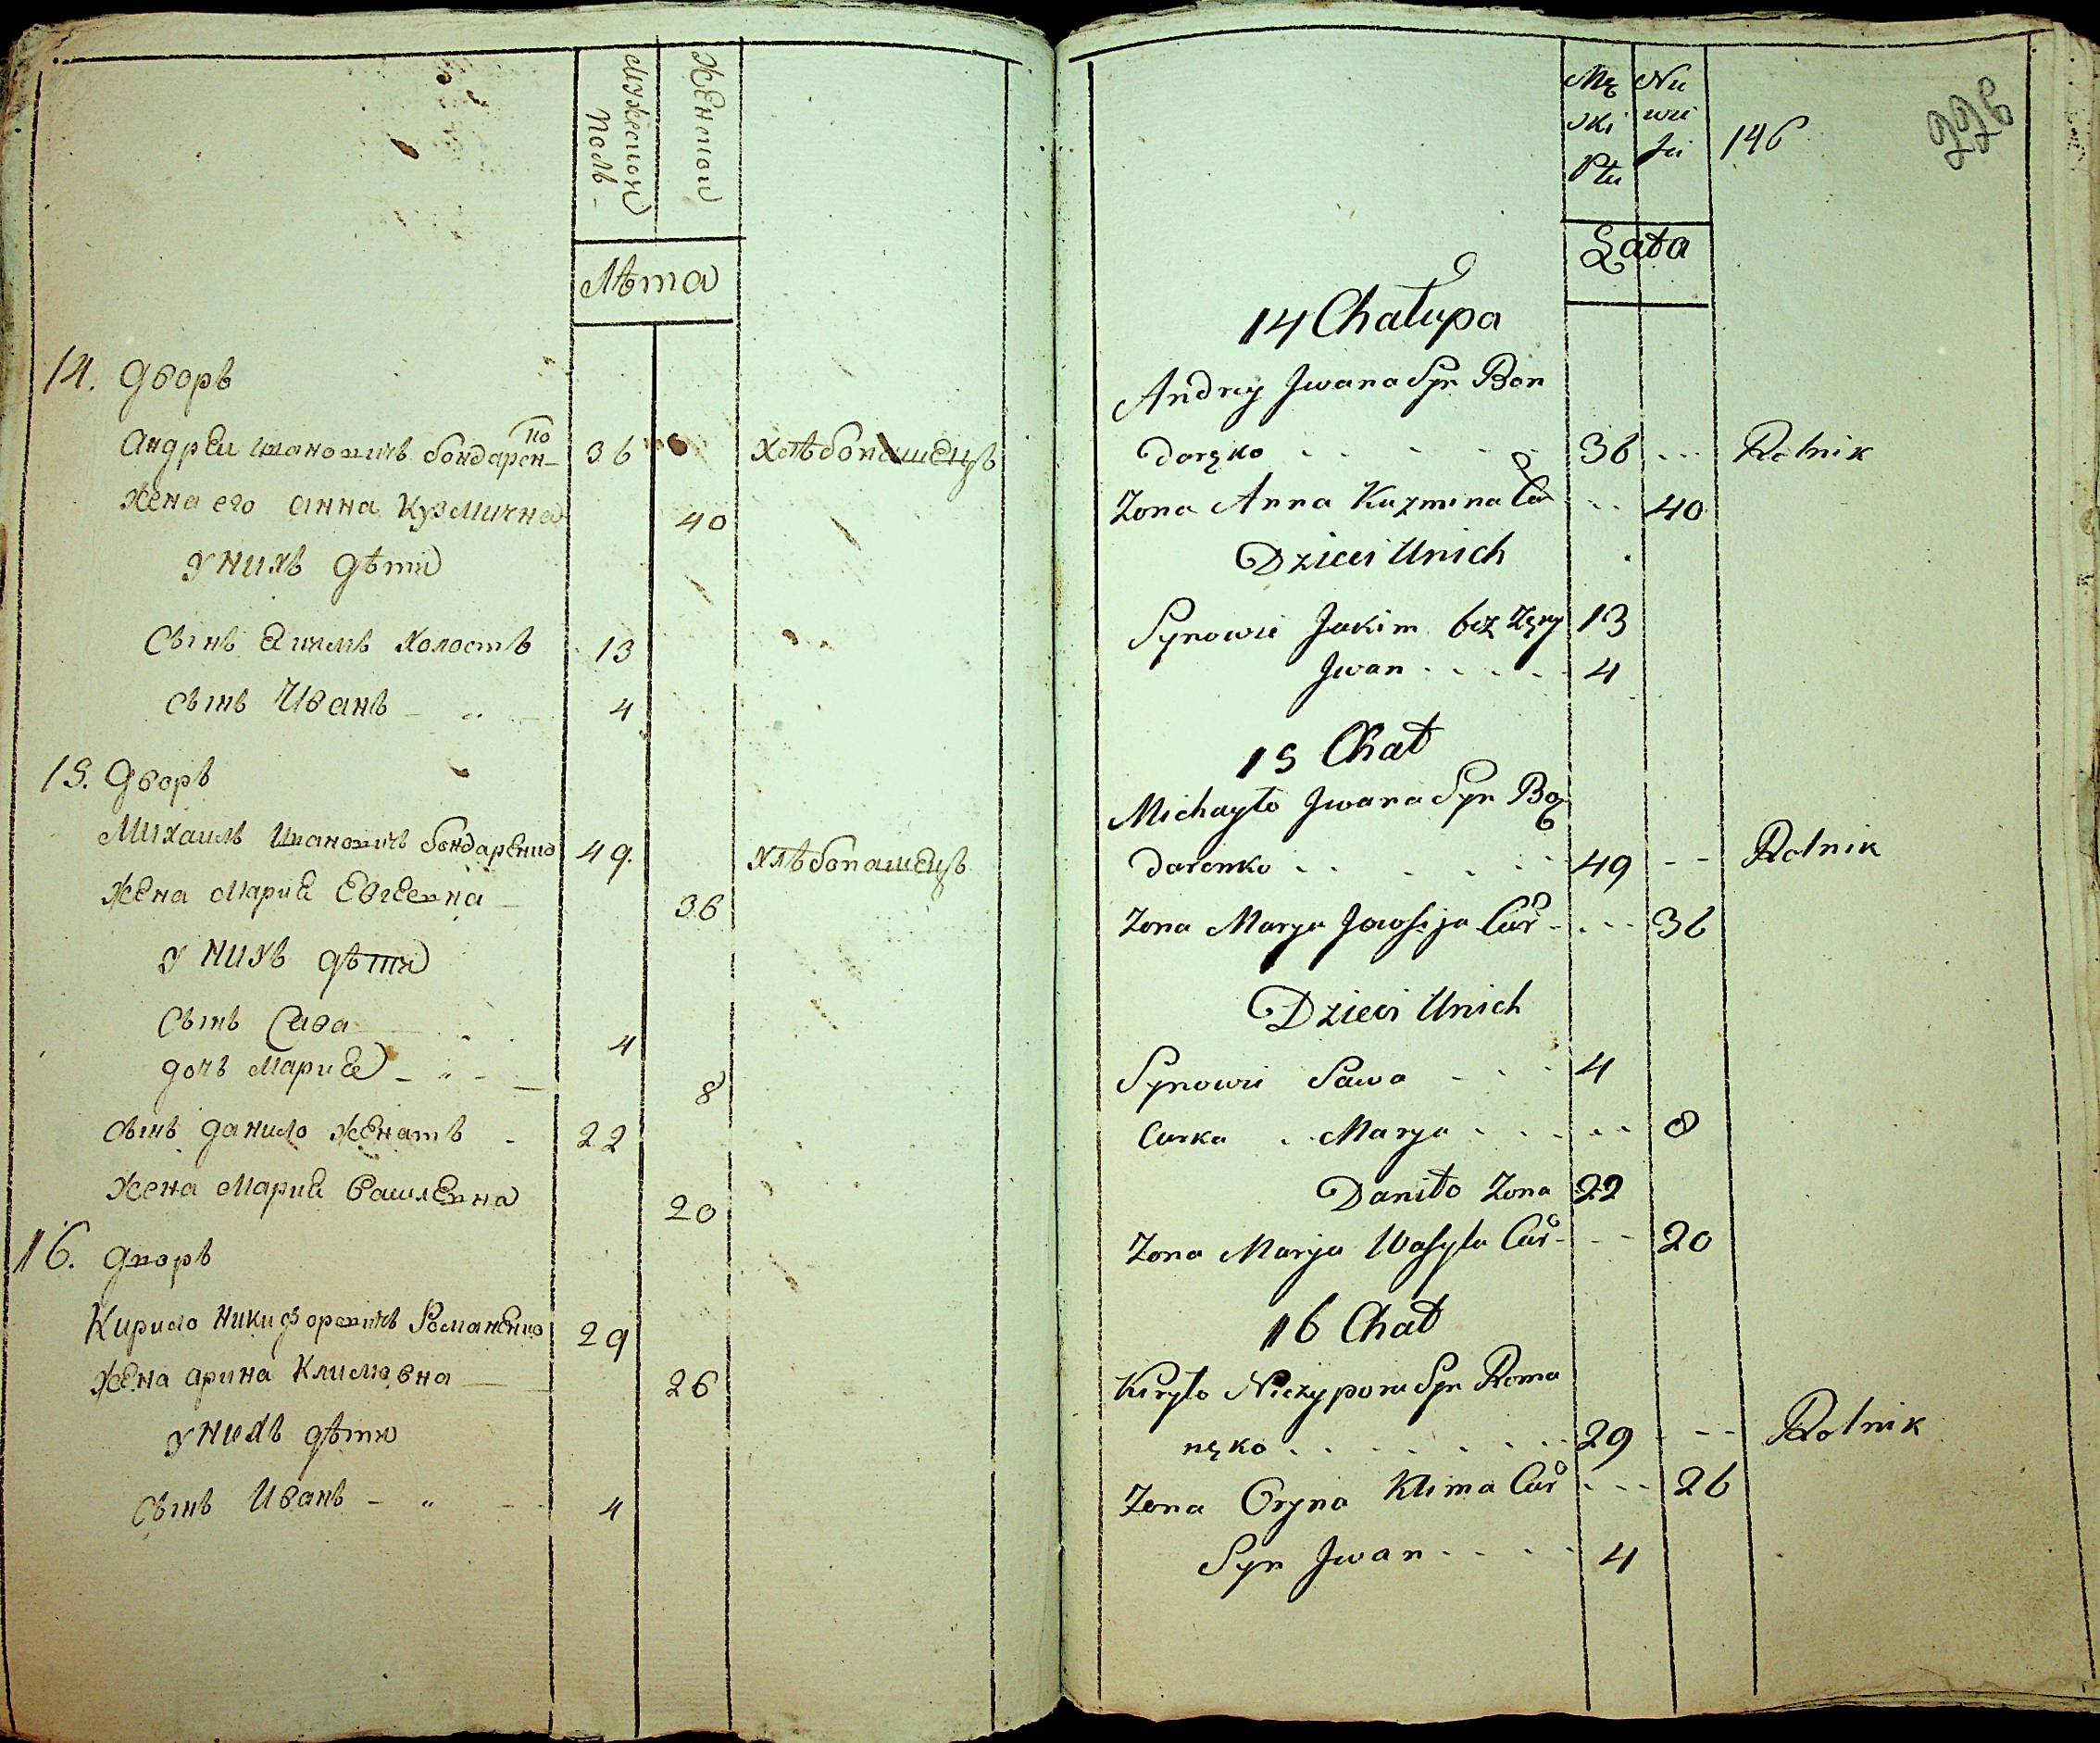 Мужескои
Полъ
Женскои
Лѣта
14. дворъ
Андреи ивановичъ бондарен-
ко 36 хлѣбопашецъ
жена его анна Кузмична 40
у нихъ дѣти
сынъ Якимъ холостъ 13
сынъ Иванъ 4
15. дворъ
Михаилъ ивановичъ бондаренко 49. хлѣбопашецъ
жена Мария Евсеевна 36
у нихъ дѣти
сынъ Сава 4
дочь Мария 8
сынъ данило женатъ 22
жена Мария василевна 20
16. дворъ
Кирило Никифоровичъ Романенко 29
жена арина Климовна 26
у нихъ дѣти
сынъ Иванъ 4
Mę
ski
Płci
Nie
wie
146
226
Lata
14 Chałupa
Andrey Jwana Syn Bon
daręko 36 Rolnik
Zona Anna Kuzmina Cór 40
Dzieci Unich
Synowie Jakim bez Zęny 13
Jwan 4
15 Chał
Michayło Jwana Syn Bon
darenko 49 Rolnik
Zona Marya Jowsija Cór 36
Dzieci Unich
Synowie Sawa 4
Curka Marya 8
Daniło Zona 22
Zona Marya Wasyla Cór 20
16 Chał
Kiryło Niczypora Syn Roma
nęko 29 Rolnik
Zona Oryna Klima Cór 26
Syn Jwan 4